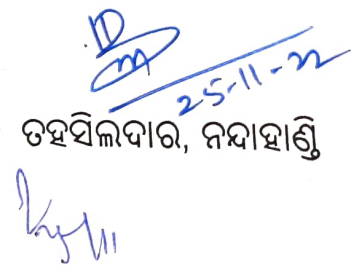 25-11-22
ତହସିଲଦାର, ନନ୍ଦାହାଣ୍ଡି